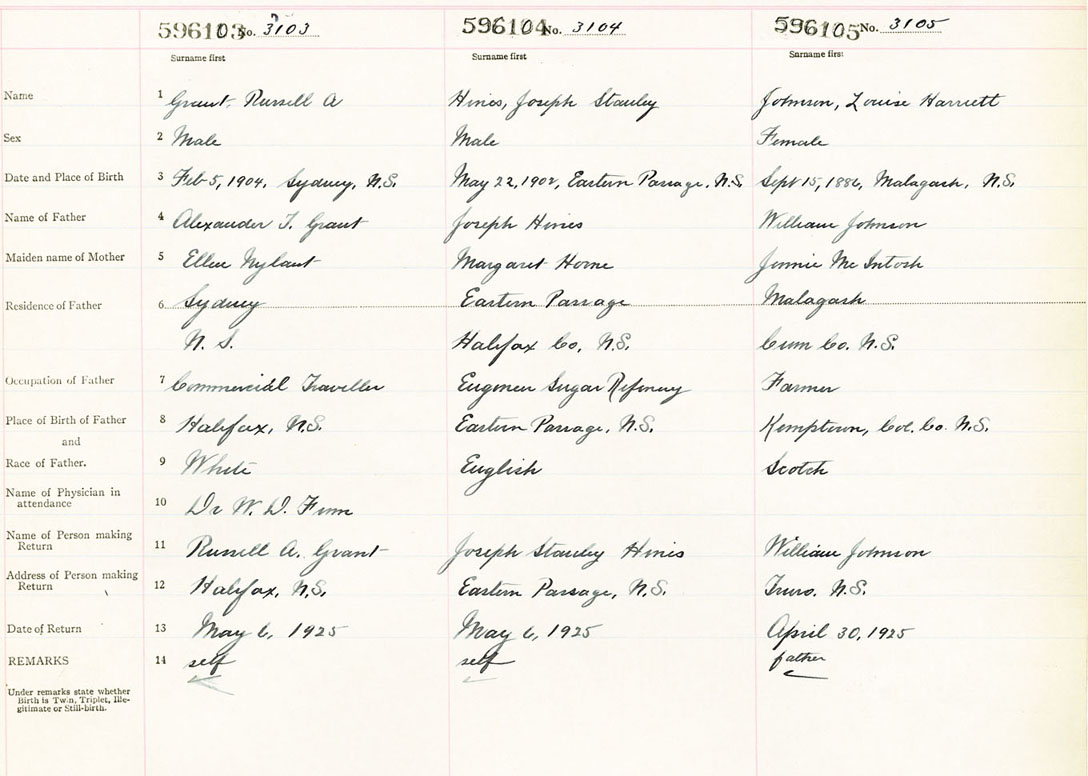 596103 No. 3103 596104 No. 3104 596105 No. 3105
Surname first Surname first Surname first
Name 1 Grant, Russell A Hines, Joseph Stanley Johnson, Louise Harriett
Sex 2 Male Male Female
Date and Place of Birth 3 Feb 5, 1904, Sydney, N.S. May 22, 1902, Eastern Passage, N.S. Sept 15, 1886, Malagash, N.S.
Name of Father 4 Alexander T. Grant Joseph Hines William Johnson
Maiden name of Mother 5 Ellen Nylant Margaret Horne Jennie McIntosh
Residence of Father 6 Sydney Eastern Passage Malagash
N. S. Halifax Co, N.S. Cum Co. N.S.
Occupation of Father 7 Commercial Traveller Engineer Sugar Refinery Farmer
Place of Birth of Father 8 Halifax, N.S. Eastern Passage, N.S. Kemptown, Col. Co. N.S.
and
Race of Father. 9 White English Scotch
Name of Physician in
attendance 10 Dr W. D. Finn
Name of Person making
Return 11 Russell A. Grant Joseph Stanley Hines William Johnson
Address of Person making
Return 12 Halifax, N.S. Eastern Passage, N.S. Truro. N.S.
Date of Return 13 May 6, 1925 May 6, 1925 April 30, 1925
REMARKS 14 self self father
Under remarks state whether
Birth is Twin, Triplet, Ille-
gitimate or Still-birth.